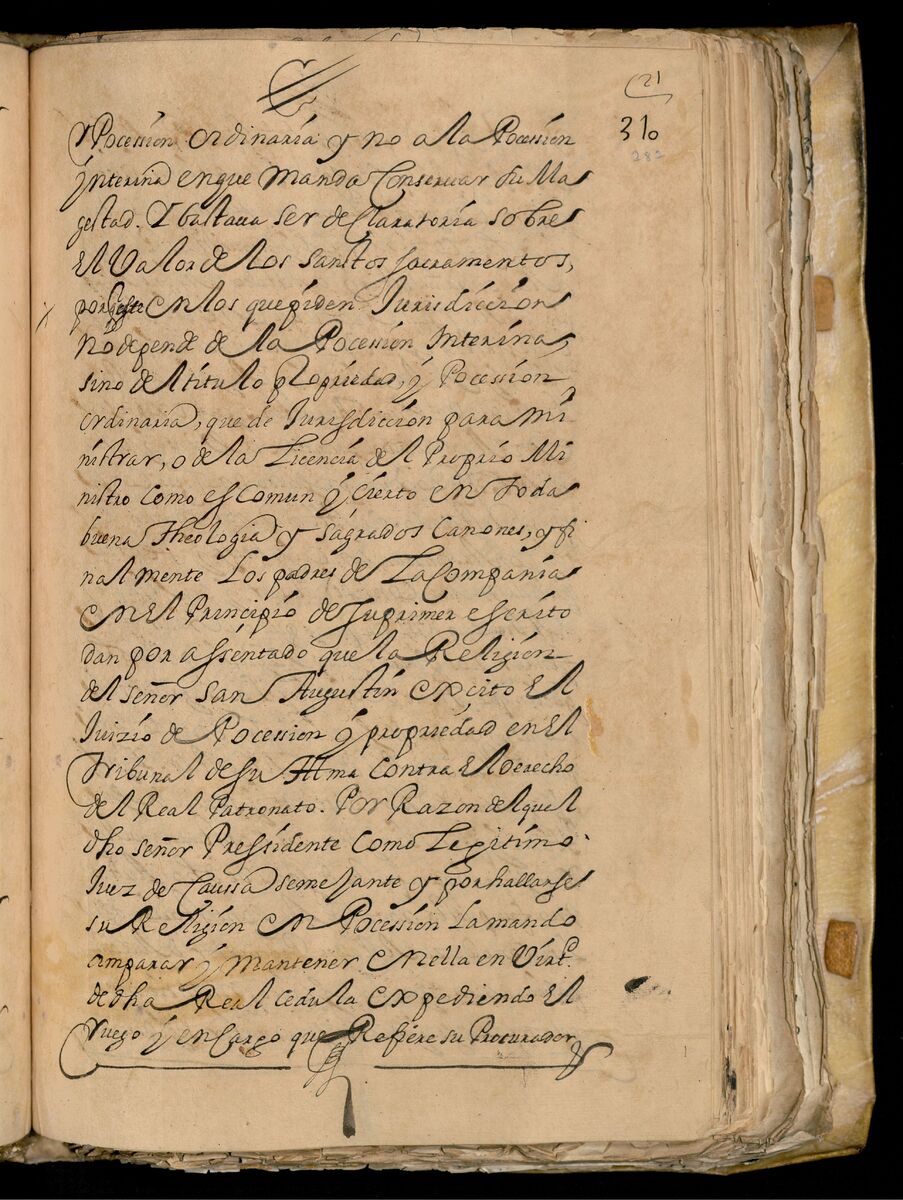 21
310
282
y Pocession ordinaria y no a la Pocession
ynterina en que Manda Conservar su Ma
gestad. Y bastaua ser de Claratoria sobre
El Valor de los santtos sacramentos,
por que en los que piden Jurisdiccion
No depende de la Pocession Interina,
sino del titulo propriedad, y Pocession
ordinaria, que de Jurisdiccion para mi
nistrar, o de la Licencia del Proprio Mi
nistro como es comun y cierto en toda
buena Theologia y sagrados Canones, y fi
nalmente Los padres de La Compania
en El Principio de su primer escrito
dan por assentado que la Religion
del señor san Augustin excito El
Juizio de Pocession y propriedad en El
Tribunal de su Illma contra El Derecho
del Real Patronato. Por Razon del quel
dho señor Pressidente como Legitimo
Juez de Caussa semejante y por hallarse
su Religion en Pocession La mando
amparar y mantener en ella en Virt.
de dha Real cedula expediendo El
ruego y encargo que Refiere su Procurador